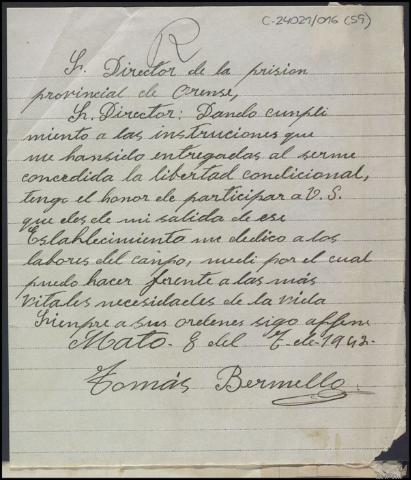 C-24021/016 (59)
R
Sr. Director de la prision
provincial de Orense,
Sr. Director: Dando cumpli
miento a las instruciones que
me hansido entregadas al serme
concedida la libertad condicional,
tengo el honor de participar a V. S.
que desde mi salida de ese
Establecimiento me dedico a los
labores del campo, medi por el cual
puedo hacer frente a las más
vitales necesidades de la vida
Siempre a sus ordenes sigo affmo
Mato. 8 del 7-de-1942-
Tomás Bermello